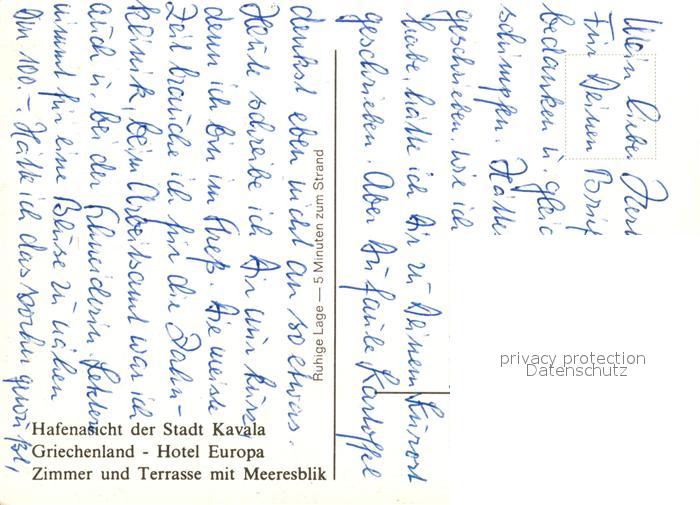 Mein lieber Herr
Für Deinen Brief
bedanken u. gleic
schimpfen. Hätte
geschrieben wie ich
habe, hätte ich Dir zu Deinem Kurort
geschrieben. Aber Du faule Kartoffel
denkst eben nicht an so etwas.
Heute schreibe ich Dir nur kurz,
denn ich bin im Streß. Die meiste
Zeit brauche ich für die Zahn-
klinik, beim Arbeitsamt war ich
auch u. bei der Schneiderin. Letztere
nimmt für eine Bluse zu nähen
DM 100.-. Hätte ich das vorher gewußt,
Ruhige Lage — 5 Minuten zum Strand
Hafenasicht der Stadt Kavala
Griechenland - Hotel Europa
Zimmer und Terrasse mit Meeresblik
privacy protection
Datenschutz